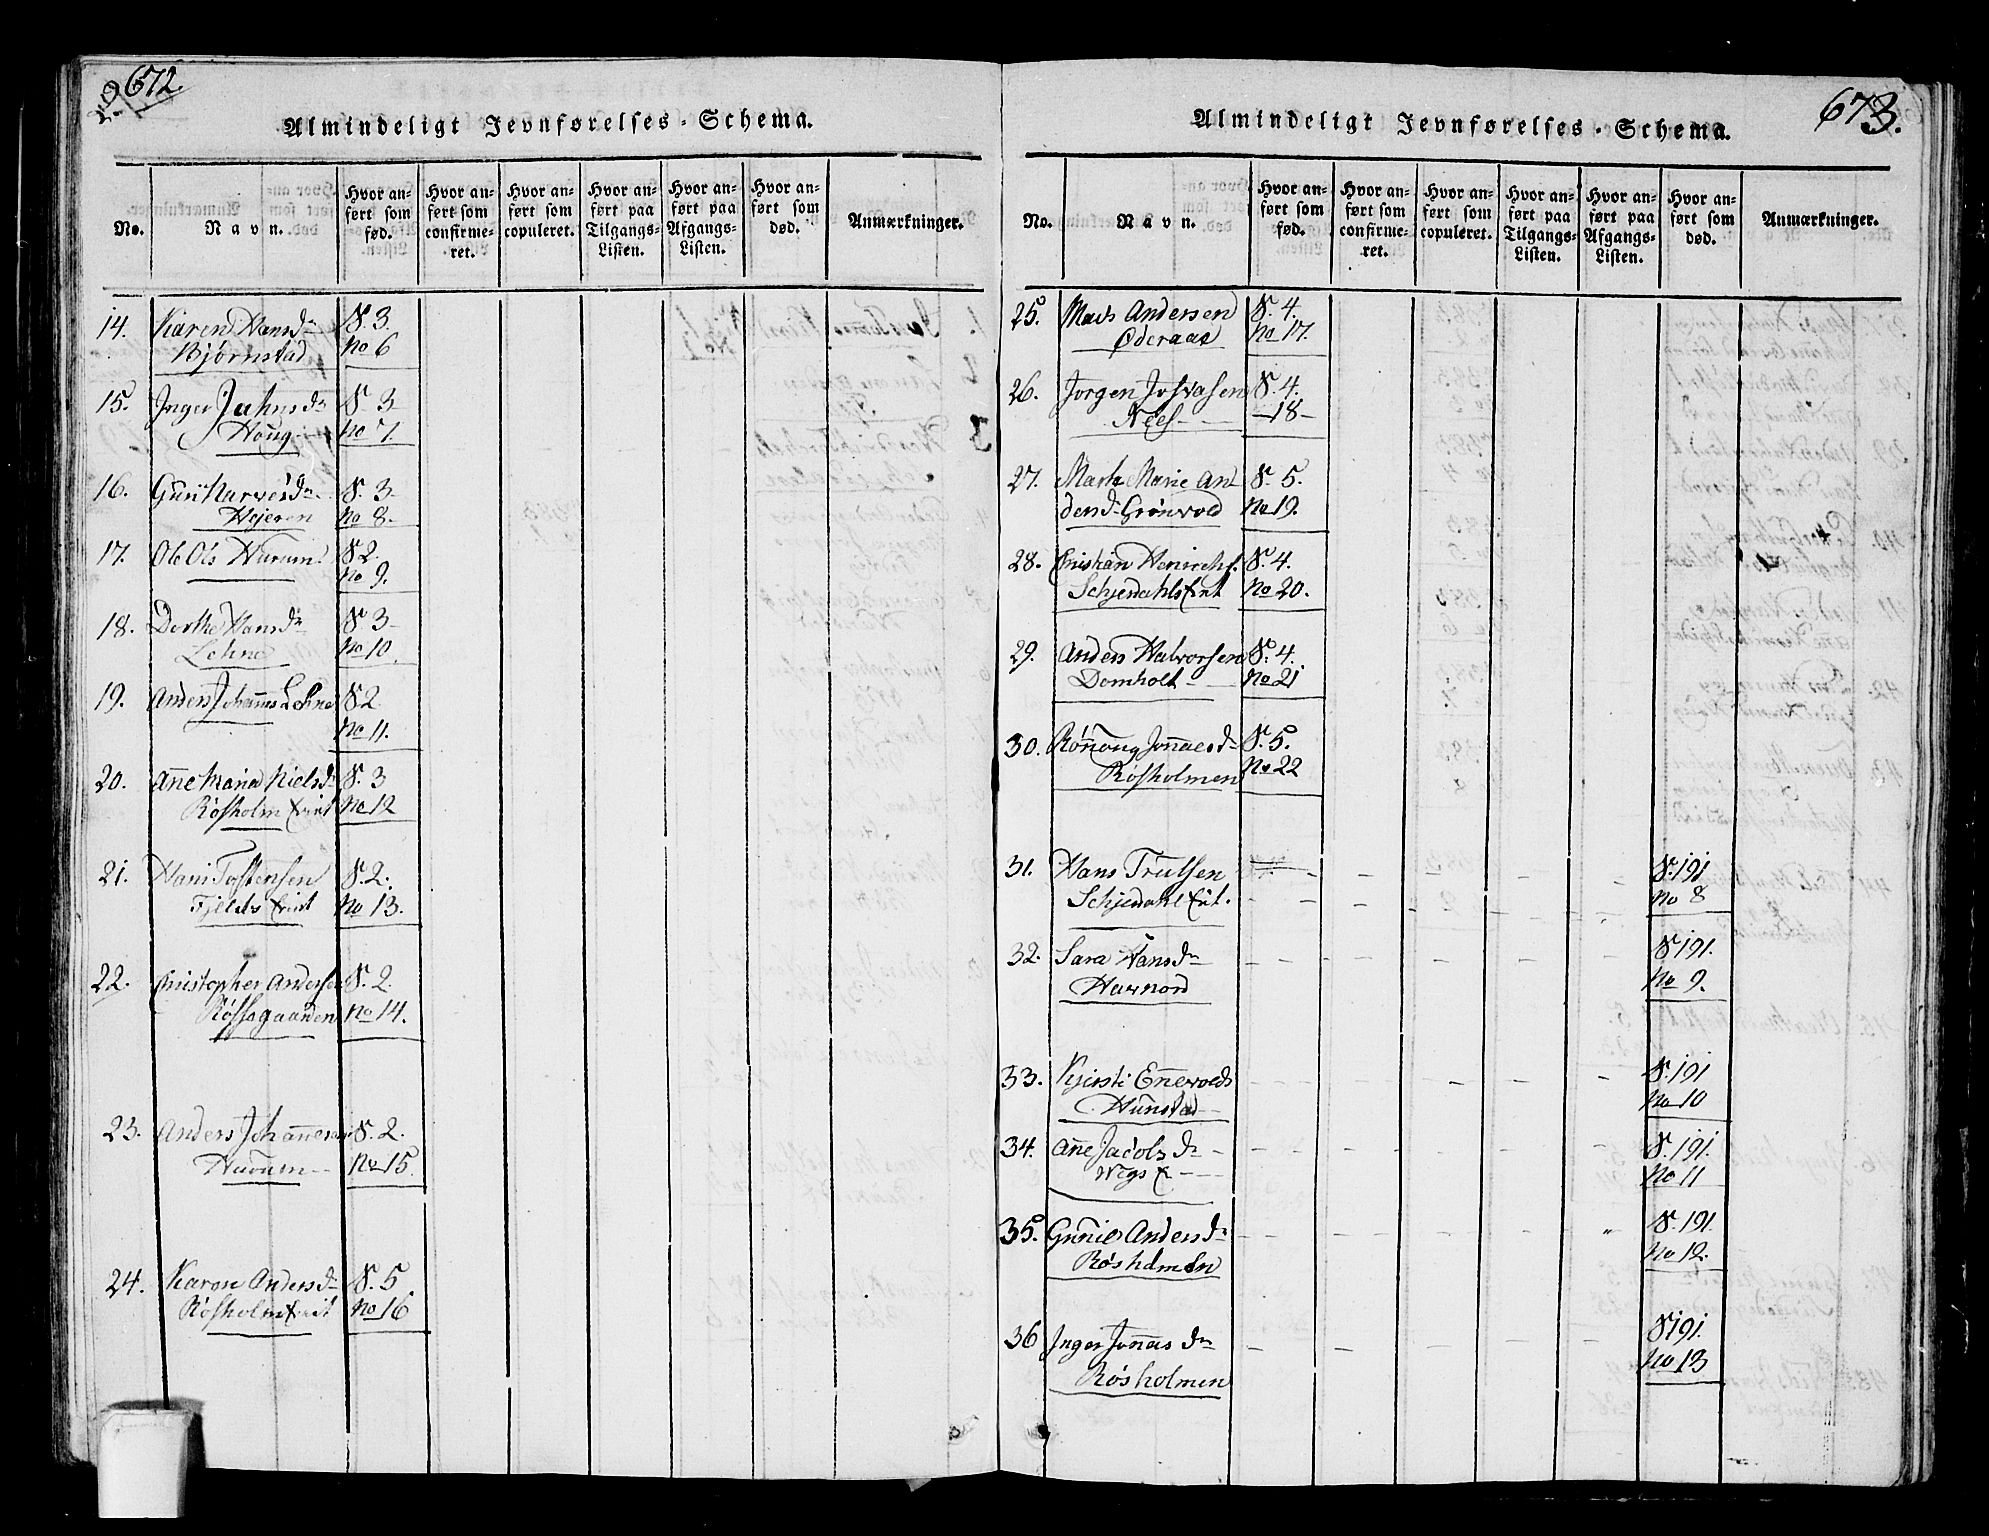 672.
Almindeligt Jevnførelses-Schema.
No.
Navn.
Hvor anført som fød.
Hvor anført som confirmeret.
Hvor anført som copuleret.
Hvor anført paa Tilgangs-Listen.
Hvor anført paa Afgangs-Listen.
Hvor anført som død.
Anmærkninger.
14. Karen Hansdr S. 3.
Bjørnstad No 6
15. Inger Jahnsdr S. 3
Houg No 7.
16. Guri Narvesdr S. 3
Hejeren No 8.
17. Ole Ols Hurum S 2.
No 9.
18. Dorthe Hansdr S. 3
Lehne No 10.
19. Anders Johannes Lehne S 2.
No 11.
20. Anne Maria Nielsdr S. 3
Røsholm No 12
21. Hans Tostensen S. 2.
Fjelds No 13.
22. Christopher Andersen S. 2.
No 14.
23. Anders Johannesen S. 2.
Hurum No 15.
24. Karen Andersdr S. 5
Røsholm No 16
673.
Almindeligt Jevnførelses-Schema.
No.
Navn.
Hvor anført som fød.
Hvor anført som confirmeret.
Hvor anført som copuleret.
Hvor anført paa Tilgangs-Listen.
Hvor anført paa Afgangs-Listen.
Hvor anført som død.
Anmærkninger.
25. Mads Andersen S. 4.
Øderaas No 17.
26. Jørgen Josvasen S. 4.
Nees -18-
27. Marte Marie An S. 5.
dersdr Grønvold No 19.
28. Christian Henrichs. S. 4.
No 20.
29. Anders Halvorsen S. 4.
Domholt No 21
30. Rønnoug Jonnaesdr S. 5.
Røsholmen No 22
31. Hans Trulsen S. 191
No 8
32. Sara Hansdr S. 191.
Hawnord No 9.
33. Kjersti Enevolds S. 191
Hunstad No 10
34. Anne Jacobsdr S. 191.
No 11
35. Gunild Andersdr S. 191.
Røsholmen No 12.
36 Inger Jonas dr S. 191.
Røsholmen No 13